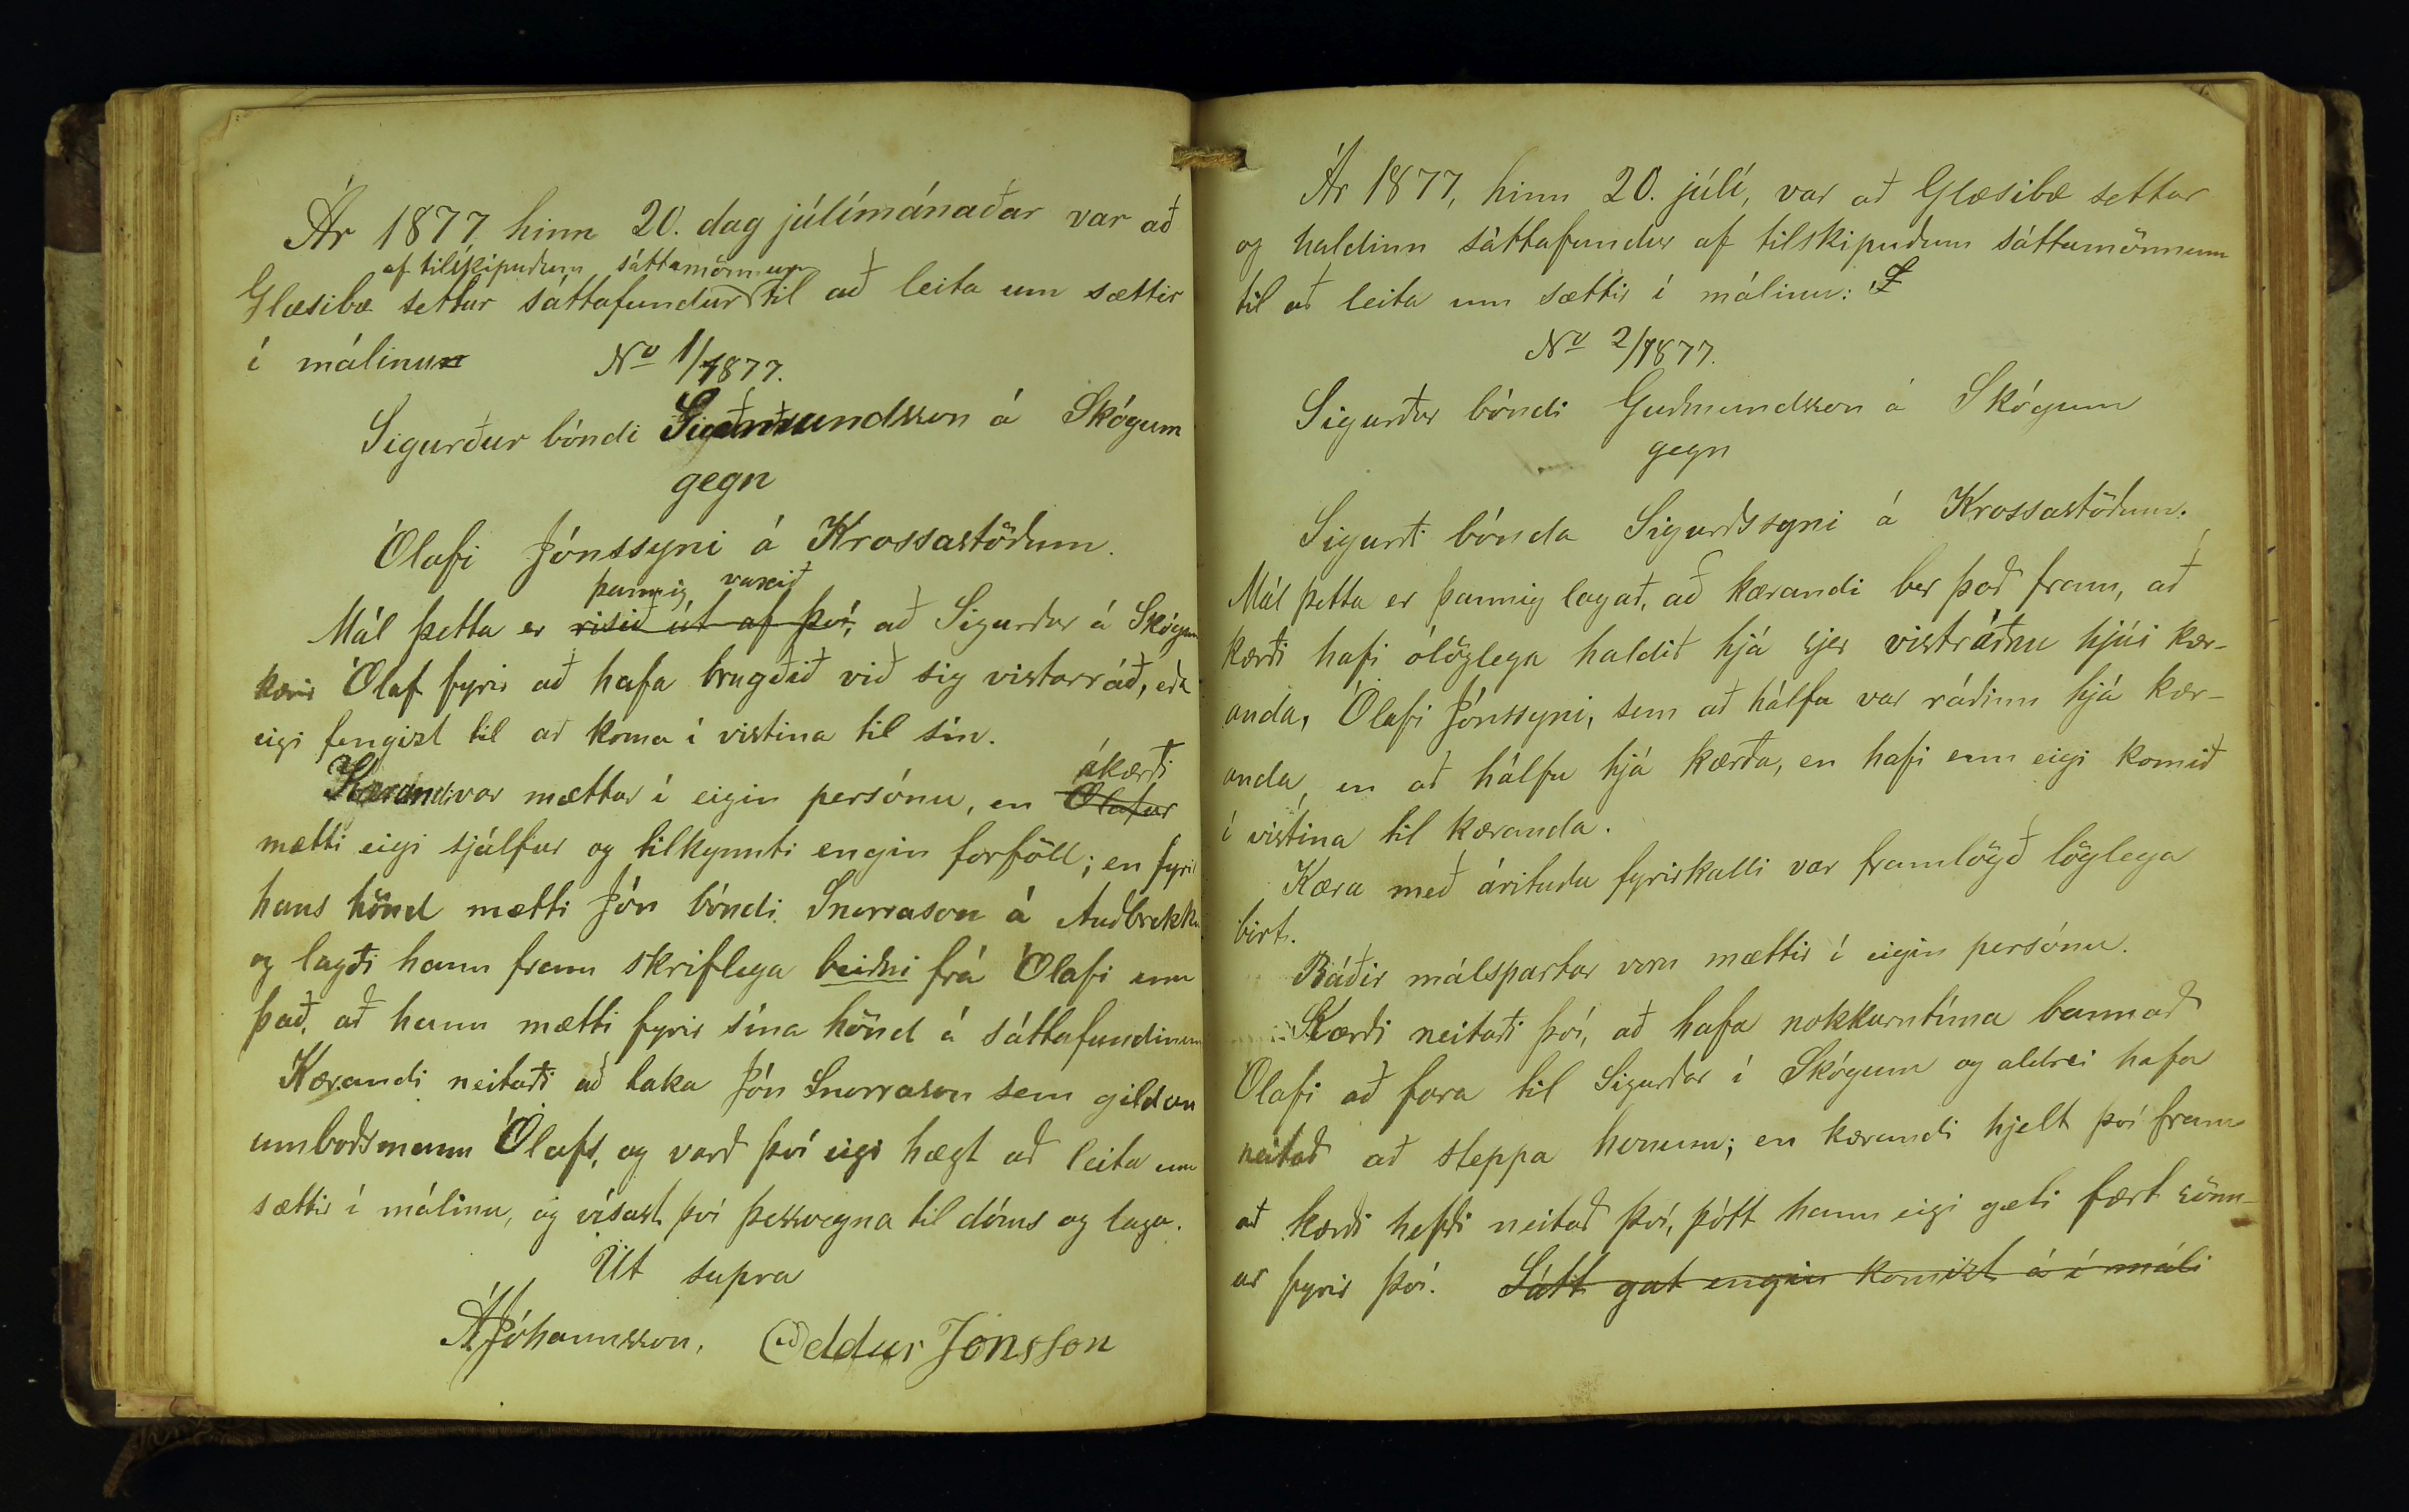 Ár 1877 hinn 20. dag júlímánaðar var að
af tilskipuðum sáttamönnum
Glæsibæ settur sáttafundur til að leita um sættir
í málinu
No 1/1877.
Sigurður bóndi Guðmundsson á Skógum
gegn
Ólafi Jónssyni á Krossastöðum.
þannig varið
Mál þetta er risið út af því, að Sigurður á Skógum
kærir Ólaf fyrir að hafa brugðið við sig vistarráð, eða
eigi fengizt til að koma í vistina til sín.
ákærði
Kærandi var mættur í eigin persónu, en Ólafur
mætti eigi sjálfur og tilkynnti engin forföll; en fyrir
hans hönd mætti Jón bóndi Snorrason á Auðbrekku
og lagði hann fram skriflega beiðni frá Ólafi um
það, að hann mætti fyrir sína hönd á sáttafundinum
Kærandi neitaði að taka Jón Snorrason sem gildan
umboðsmann Ólafs, og varð því eigi hægt að leita um
sættir í málinu, og vísast því þessvegna til dóms og laga.
Ut supra
ÁJóhannsson. Oddur Jónsson
Ár 1877, hinn 20. júlí, var að Glæsibæ settur
og haldinn sáttafundur af tilskipuðum sáttamönnum
til að leita um sættir í málinu:
No 2/1877.
Sigurður bóndi Guðmundsson á Skógum
gegn
Sigurði bónda Sigurðssyni á Krossastöðum.
Mál þetta er þannig lagað, að kærandi ber það fram, að
kærði hafi ólöglega haldið hjá sjer vistráðnu hjúi kær-
anda, Ólafi Jónssyni, sem að hálfu var ráðinn hjá kær-
anda, en að hálfu hjá kærða, en hafi enn eigi komið
í vistina til kæranda.
Kæra með árituðu fyrirkalli var framlögð löglega
birt.
Báðir málspartar voru mættir í eigin persónu.
Kærði neitaði því, að hafa nokkurntíma bannað
Ólafi að fara til Sigurðar í Skógum og aldrei hafa
neitað að sleppa honum; en kærandi hjelt því fram
að kærði hefði neitað því, þótt hann eigi gæti fært sönn-
ur fyrir því. Sátt gat engin komizt á í máli